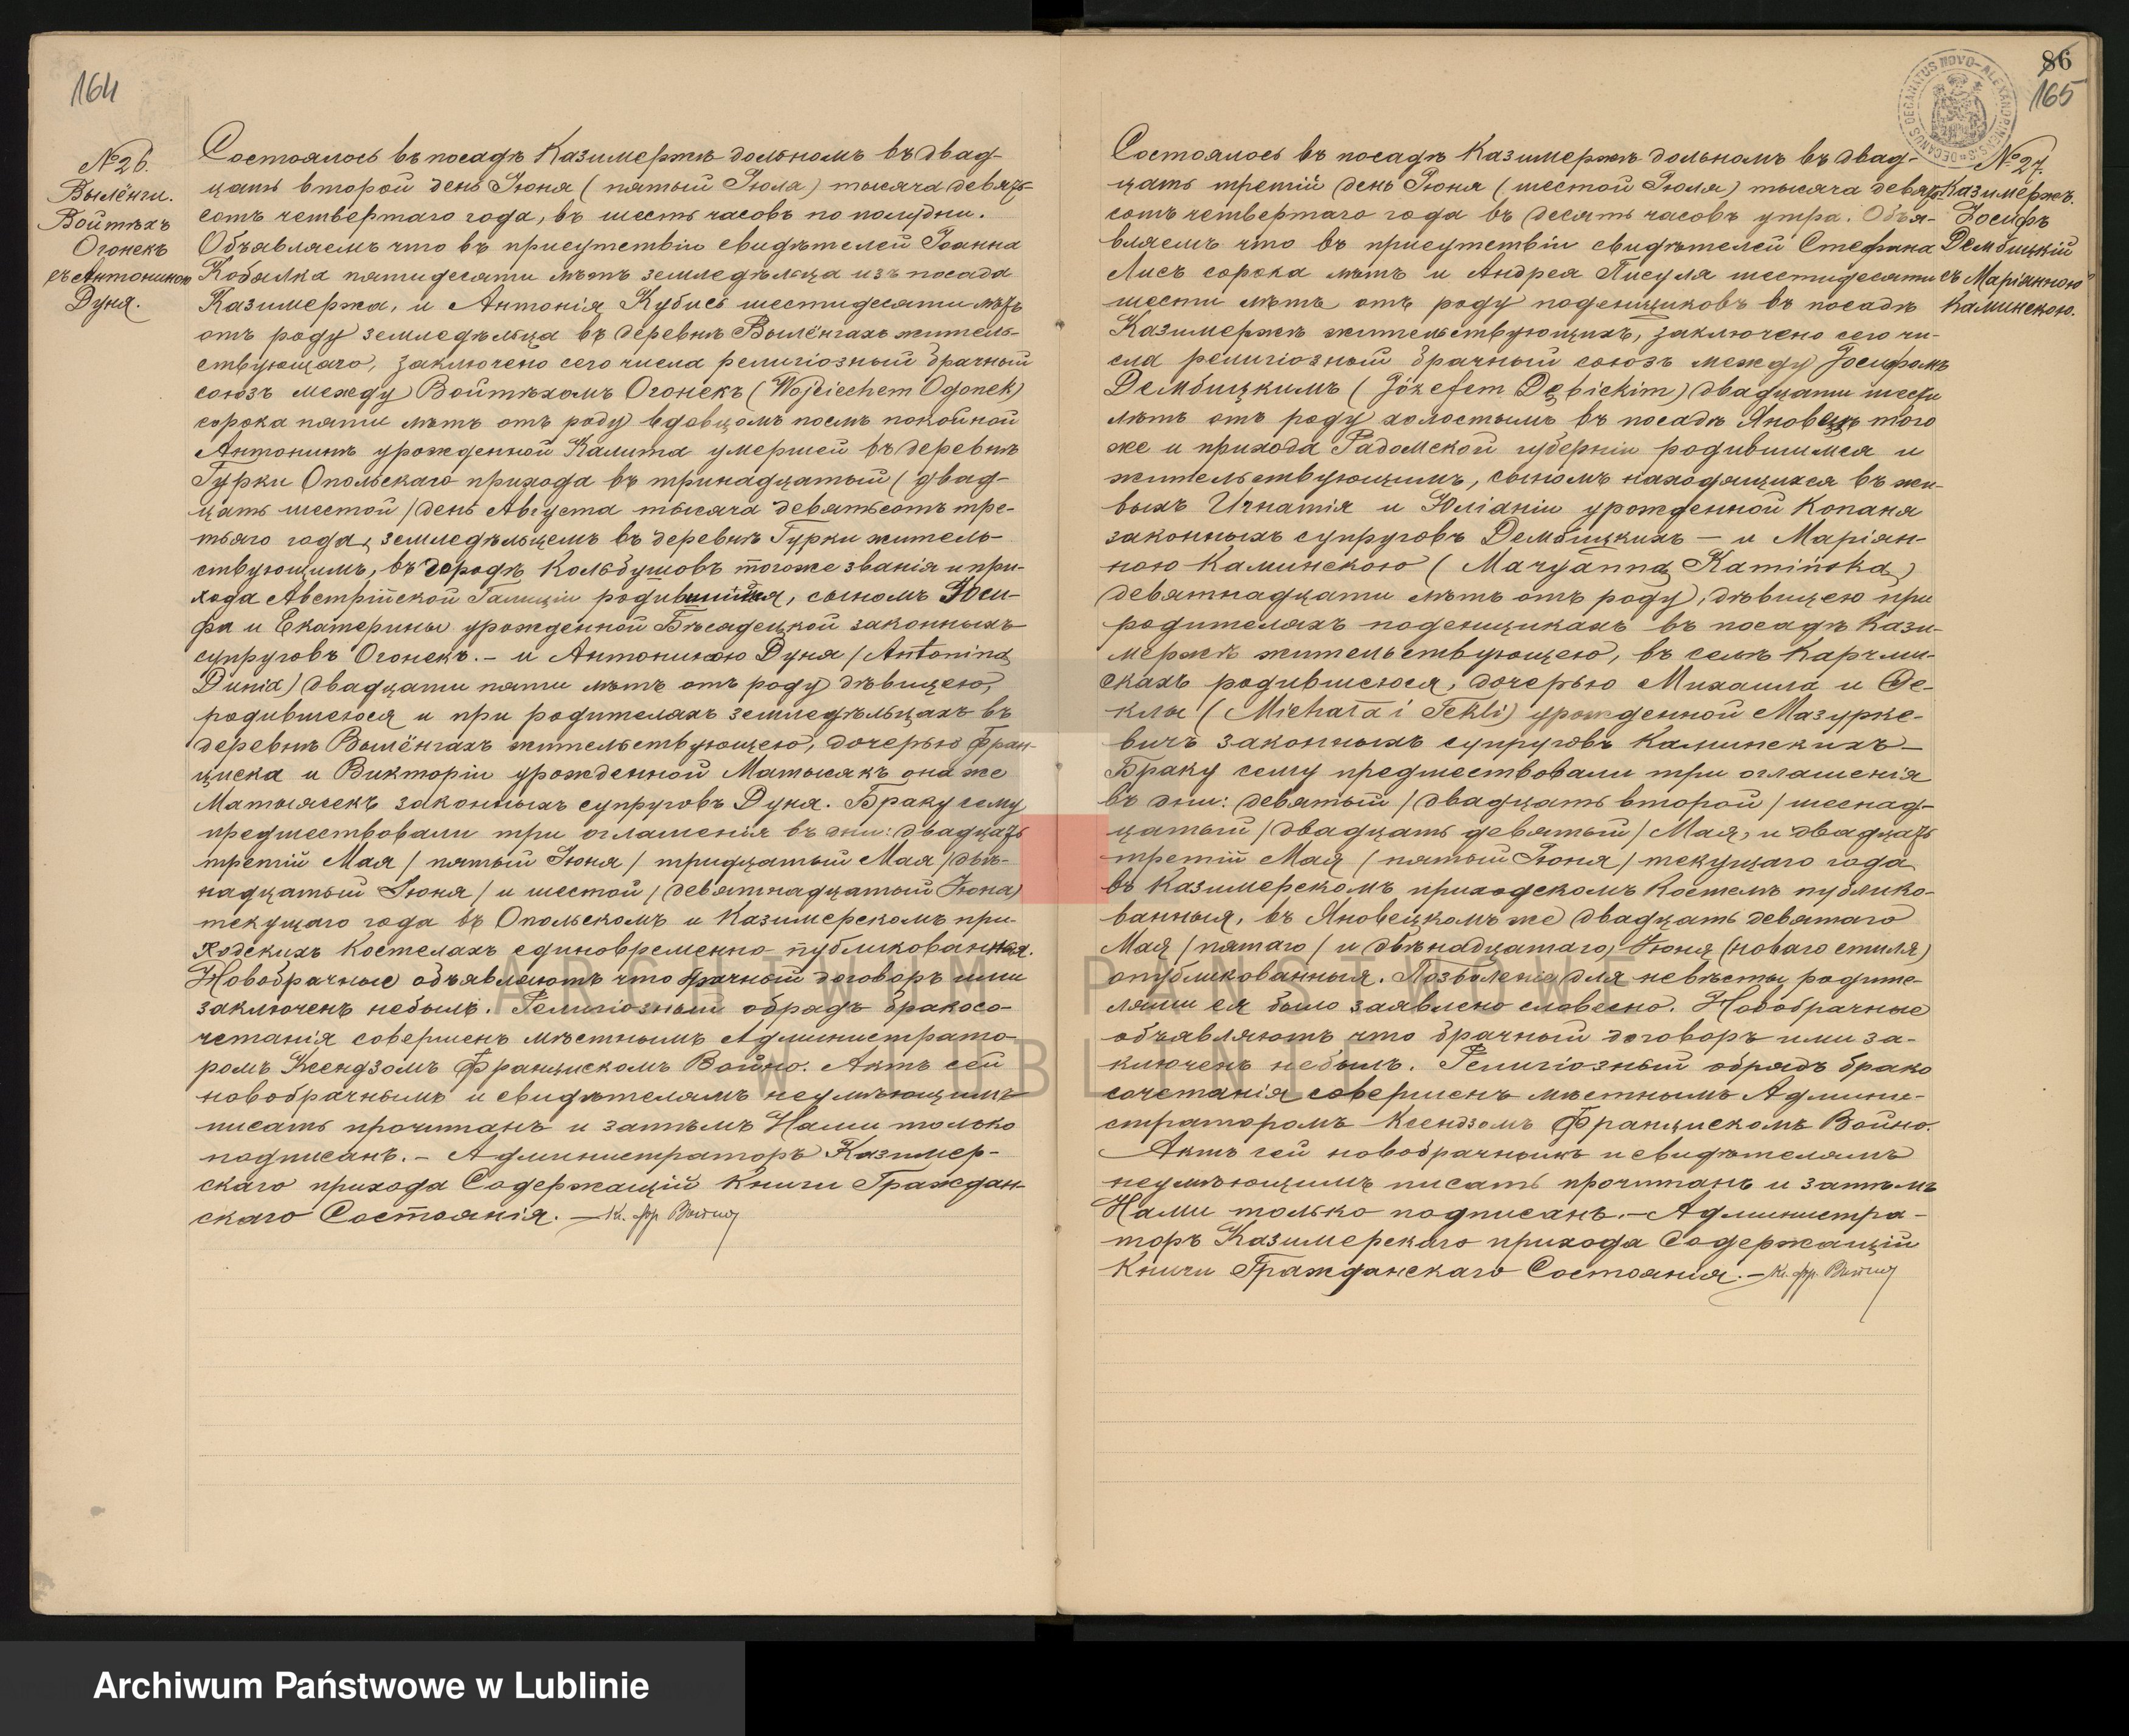 164
№ 26.
Вылёнги.
Войтѣхъ
Огонекъ
съ Антониною
Дуня.
Состоялось въ посадѣ Казимержѣ дольномъ въ двад-
цать второй день Іюня (пятый Іюля) тысяча девять-
сотъ четвертаго года, въ шесть часовъ по полудни.
Объявляемъ что въ присутствіи свидѣтелей Іоанна
Кобялка пятидесяти лѣтъ земледѣльца изъ посада
Казимержа, и Антонія Кубись шестидесяти лѣтъ
отъ роду земледѣльца въ деревнѣ Вылёнгахъ житель-
ствующаго, заключено сего числа религіозный брачный
союзъ между Войтѣхомъ Огонекъ (Wojciechem Ogonek)
сорока пяти лѣтъ отъ роду вдовцомъ послѣ покойной
Антонинѣ урожденной Калита умершей въ деревнѣ
Гурки Опольскаго прихода въ тринадцатый (двад-
цать шестой) день Августа тысяча девятьсотъ тре-
тьяго года, земледѣльцемъ въ деревнѣ Гурки житель-
ствующимъ, въ городѣ Кольбушовъ тогоже званія и при-
хода Австрійской Галиціи родившійся, сыномъ Іоси-
фа и Екатерины урожденной Бѣсядецкой законныхъ
супруговъ Огонекъ. – и Антониною Дуня (Antoniną
Dunia) двадцати пяти лѣтъ отъ роду дѣвицею,
родившеюся и при родителяхъ земледѣльцахъ въ
деревнѣ Вылёнгахъ жительствующею, дочерью Фран-
циска и Викторіи урожденной Матысякъ она же
Матыясекъ законныхъ супруговъ Дуня. Браку сему
предшествовали три оглашенія въ дни: двадцать
третій Мая (пятый Іюня) тридцатый Мая (двѣ-
надцатый Іюня) и шестой (девятнадцатый Іюня)
текущаго года въ Опольскомъ и Казимерскомъ при-
ходскихъ Костелахъ единовременно публикованныя.
Новобрачные объявляютъ что брачный договоръ ими
заключенъ небылъ. Религіозный обрядъ бракосо-
четанія совершенъ мѣстнымъ Администрато-
ромъ Ксендзомъ Францискомъ Войно. Актъ сей
новобрачнымъ и свидѣтелямъ неумѣющимъ
писать прочитанъ и затѣмъ Нами только
подписанъ. – Администраторъ Казимер-
скаго прихода Содержащій Книги Граждан-
скаго Состоянія. – Кс. Фр. Войно
86
165
DECANUS DECANATUS NOVO-ALEXANDRINENSIS
№ 27.
Казимержъ.
Іосифъ
Дембицкій
съ Маріянною
Каминскою.
Состоялось въ посадѣ Казимержѣ дольномъ въ двад-
цать третій день Іюня (шестой Іюля) тысяча девять-
сотъ четвертаго года въ десять часовъ утра. Объя-
вляемъ что въ присутствіи свидѣтелей Стефана
Лисъ сорока лѣтъ и Андрея Писуля шестидесяти
шести лѣтъ отъ роду поденщиковъ въ посадѣ
Казимержѣ жительствующихъ, заключено сего чи-
сла религіозный брачный союзъ между Іосифомъ
Дембицкимъ (Józefem Dębickim) двадцати шести
лѣтъ отъ роду холостымъ въ посадѣ Яновецъ того
же и прихода Радомской губерніи родившимся и
жительствующимъ, сыномъ находящихся въ жи-
выхъ Игнатія и Юліаніи урожденной Копаня
законныхъ супруговъ Дембицкихъ – и Маріян-
ною Каминскою (Maryanną Kamińską)
девятнадцати лѣтъ отъ роду, дѣвицею при
родителяхъ поденщикахъ въ посадѣ Кази-
мержѣ жительствующею, въ селѣ Карчми-
скахъ родившеюся, дочерью Михаила и Ѳе-
клы (Michała i Tekli) урожденной Мазурке-
вичъ законныхъ супруговъ Каминскихъ –
Браку сему предшествовали три оглашенія
въ дни: девятый (двадцать второй) шеснад-
цатый (двадцать девятый) Мая, и двадцать
третій Мая (пятый Іюня) текущаго года
въ Казимерскомъ приходскомъ Костелѣ публико-
ванныя, въ Яновецкомъ же двадцать девятаго
Мая (пятаго) и двѣнадцатаго Іюня (новаго стиля)
опубликованныя. Позволеніе для невѣсты родите-
лями ея было заявлено словесно. Новобрачные
объявляютъ что брачный договоръ ими за-
ключенъ небылъ. Религіозный обрядъ брако
сочетанія совершенъ мѣстнымъ Админи-
страторомъ Ксендзомъ Францискомъ Войно.
Актъ сей новобрачнымъ и свидѣтелямъ
неумѣющимъ писать прочитанъ и затѣмъ
Нами только подписанъ. – Администра-
торъ Казимерскаго прихода Содержащій
Книги Гражданскаго Состоянія. – Кс. Фр. Войно
ARCHIWUM PAŃSTWOWE
W LUBLINIE
Archiwum Państwowe w Lublinie